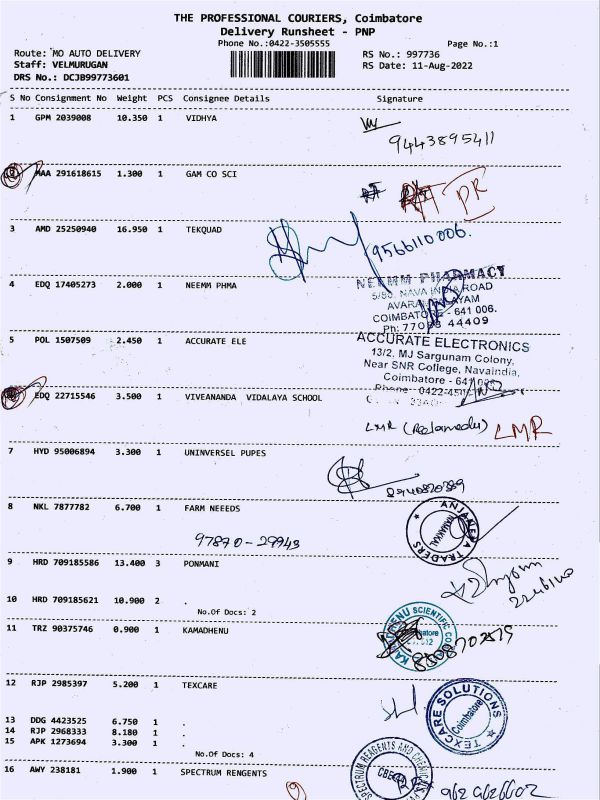 THE PROFESSIONAL COURIERS, Coimbatore
Delivery Runsheet - PNP
Phone No.:0422-3505555
Page No.:1
Route: MO AUTO DELIVERY
RS No.: 997736
Staff: VELMURUGAN
RS Date: 11-Aug-2022
DRS No.: DCJB99773601
S No Consignment No Weight PCS Consignee Details Signature
1 GPM 2039008 10.350 1 VIDHYA
9443895411
MAA 291618615 1.300 1 GAM CO SCI
PR
3 AMD 25250940 16.950 1 TEKQUAD
9566110006.
4 EDQ 17405273 2.000 1 NEEMM PHMA
NEEMM PHARMACY
5/80, NAVA INDIA ROAD
COIMBATORE - 641 006.
44409
5 POL 1507509 2.450 1 ACCURATE ELE
ACCURATE ELECTRONICS
13/2, MJ Sargunam Colony,
Near SNR College, Navaindia,
Coimbatore -
Phone 0422-
EDQ 22715546 3.500 1 VIVEANANDA VIDALAYA SCHOOL
LMR
LMR
7 HYD 95006894 3.300 1 UNINVERSEL PUPES
8940820389
8 NKL 7877782 6.700 1 FARM NEEEDS
97870-29943
ANJANEYA TRADERS
NAMAKKAL
9 HRD 709185586 13.400 3 PONMANI
10 HRD 709185621 10.900 2 .
No.Of Docs: 2
11 TRZ 90375746 0.900 1 KAMADHENU
12 RJP 2985397 5.200 1 TEXCARE
TEXCARE SOLUTIONS
Coimbatore
13 DDG 4423525 6.750 1 .
14 RJP 2968333 8.180 1 .
15 APK 1273694 3.300 1 .
No.Of Docs: 4
16 AWY 238181 1.900 1 SPECTRUM RENGENTS
SPECTRUM REAGENTS AND
CBE